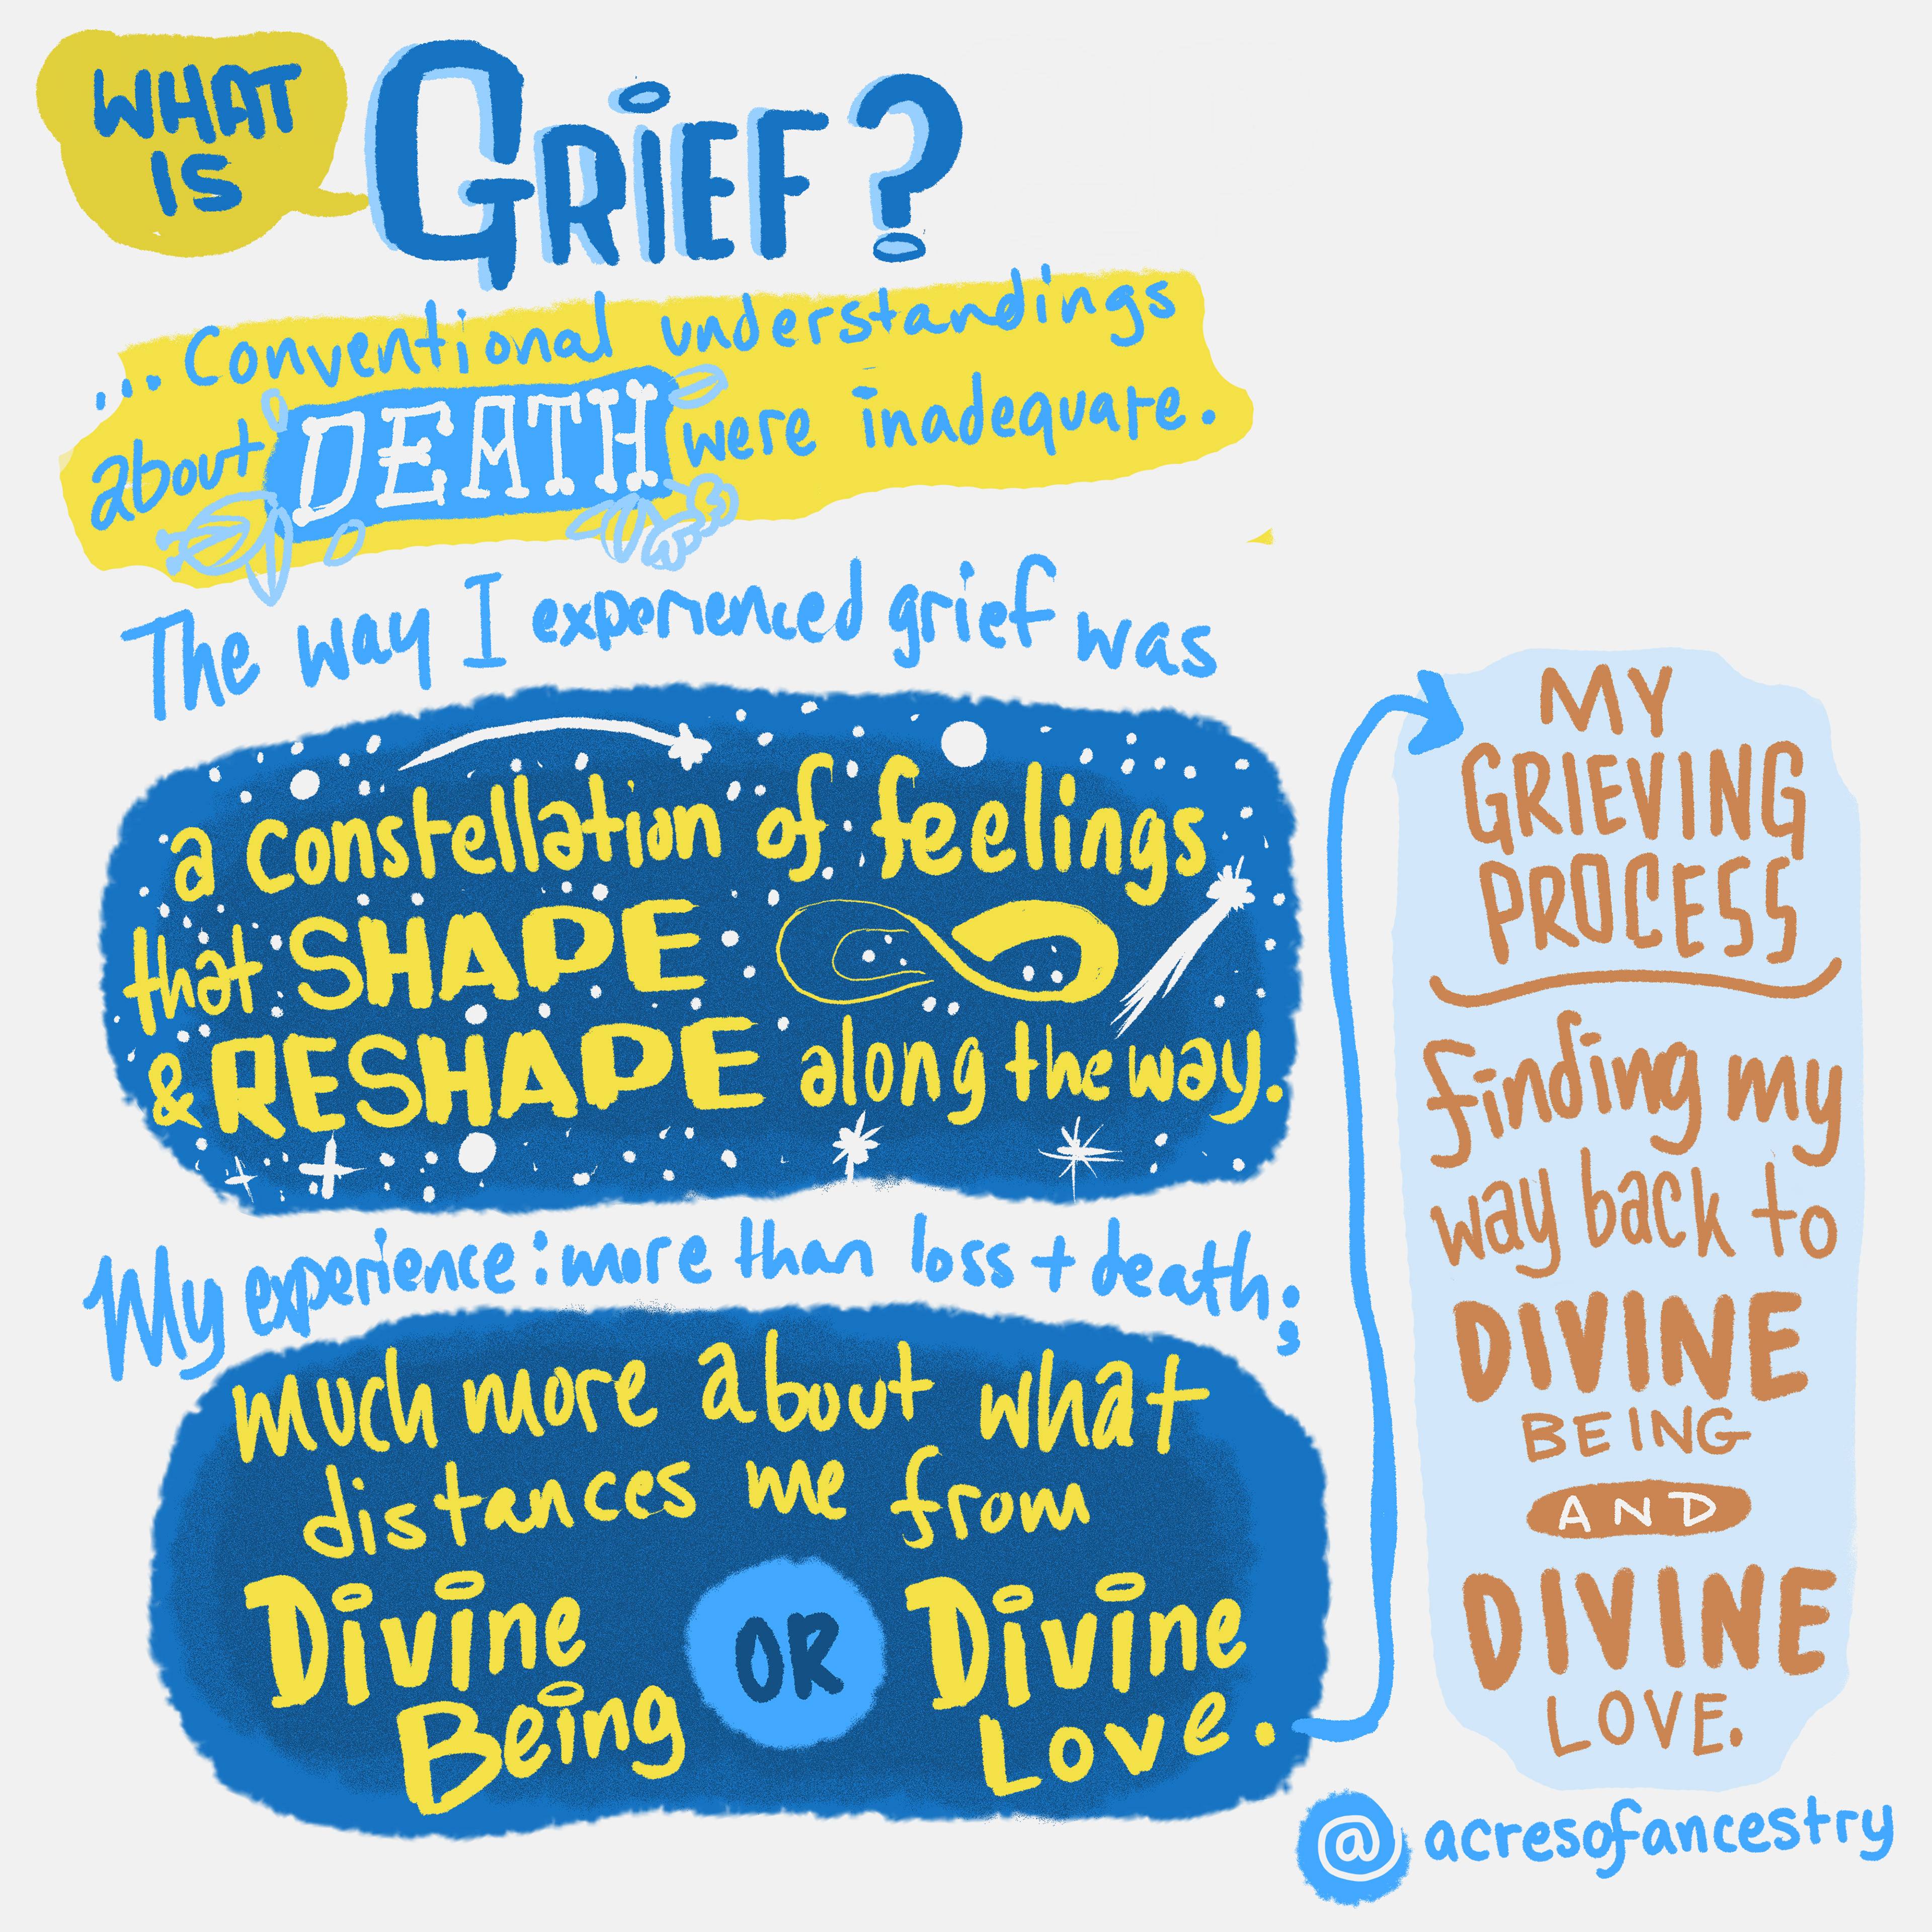 WHAT
IS
GRIEF?
...Conventional understandings
about DEATH were inadequate.
The way I experienced grief was
a constellation of feelings
that SHAPE
& RESHAPE along the way.
My experience: more than loss + death;
much more about what
distances me from
Divine
Being
OR
Divine
Love.
MY
GRIEVING
PROCESS
finding my
way back to
DIVINE
BEING
AND
DIVINE
LOVE.
@acresofancestry